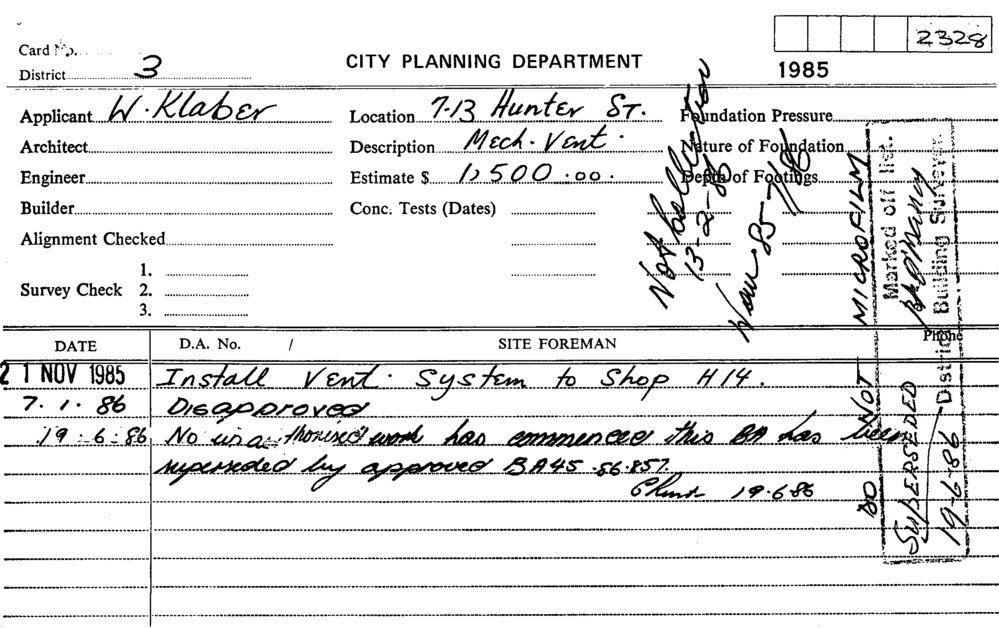 2328
Card No.
District 3
CITY PLANNING DEPARTMENT
1985
Applicant W. Klaber
Location 7-13 Hunter St.
Foundation Pressure
Architect
Description Mech. Vent.
Nature of Foundation
Engineer
Estimate $ 1,500.00.
Depth of Footings
Builder
Conc. Tests (Dates)
Alignment Checked
1.
Survey Check 2.
3.
13-2-86
DO NOT MICROFILM
Marked off list.
District Building Surveyor.
SUPERSEDED
19-6-86
DATE
D.A. No. /
SITE FOREMAN
Phone
21 NOV 1985 Install Vent. System to Shop H14.
7.1.86 Disapproved
19.6.86 No unauthorised work has commenced this BA has been
superseded by approved BA45.86.857.
19.6.86